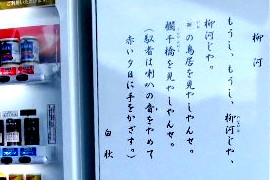 柳河
もうし、もうし、柳河じゃ、
柳河じゃ。
の鳥居を見やしゃんせ。
欄干橋を見やしゃんせ。
(馭者は喇叭の音をやめて
赤い夕日に手をかざす。)
白秋